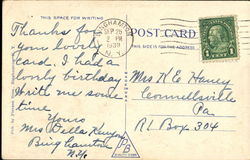 THIS SPACE FOR WRITING
POST CARD
THIS SIDE IS FOR THE ADDRESS
SEP 25
2 PM
1939
N.Y.
1
Thanks for
your lovely
card. I had a
lovely birthday
Write me some
time
Yours
Mrs Della
Binghamton
N.Y.
Mrs H. E. Haney
Connellsville
Pa
R1. Box. 304